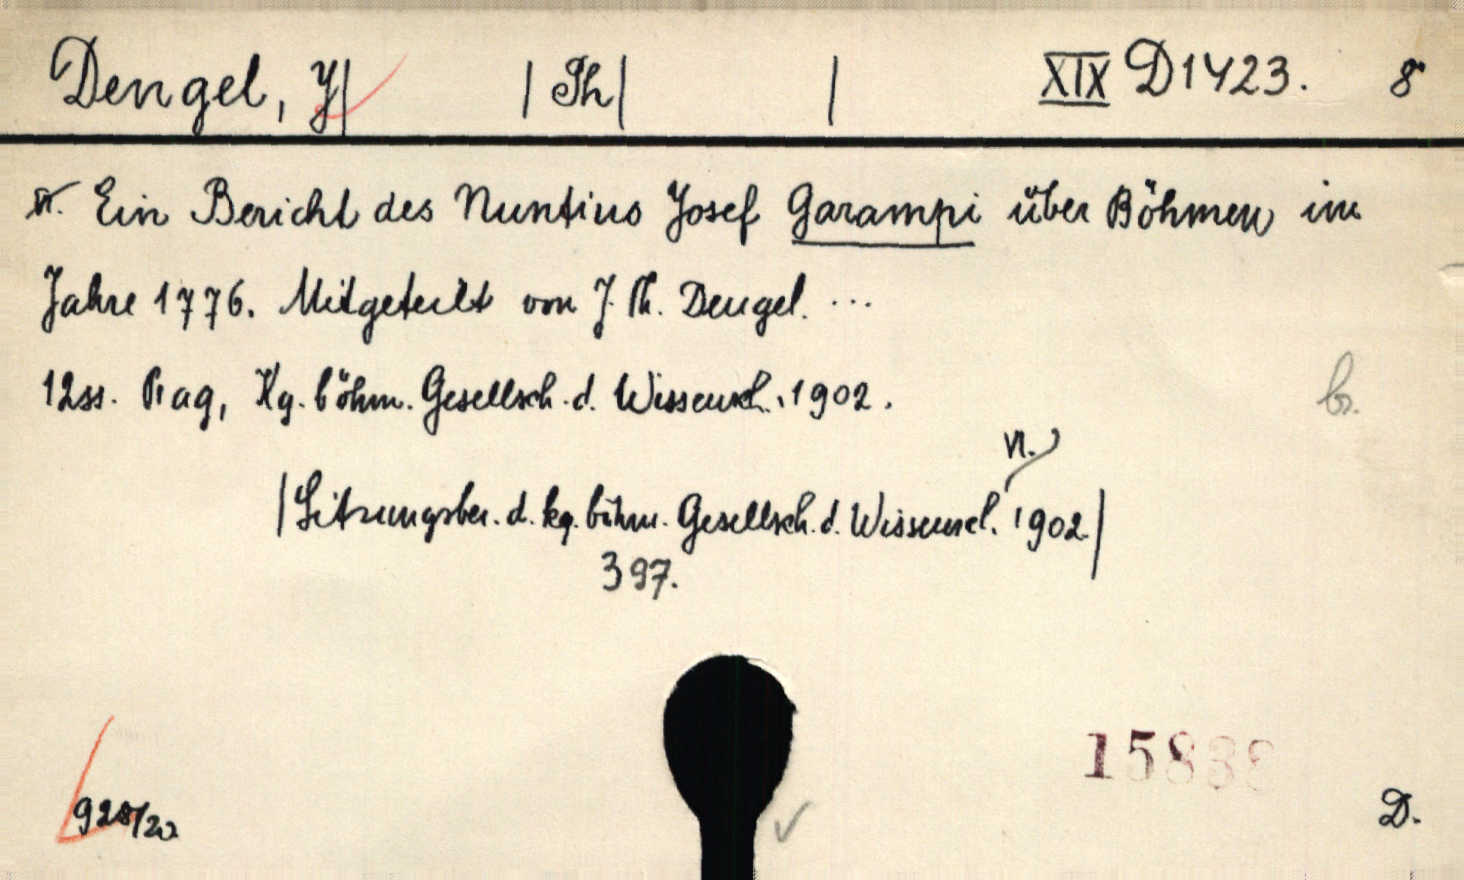 Dengel, J| | Th| | XIX D1423. 8°
Ein Bericht des Nuntius Josef Garampi über Böhmen im
Jahre 1776. Mitgeteilt von J. Th. Dengel. ...
12ss. Prag, Kg. böhm. Gesellsch. d. Wissensch., 1902.
br.
VI.
|Sitzungsber. d. kg. böhm. Gesellsch. d. Wissensch. 1902.|
397.
15838
D.